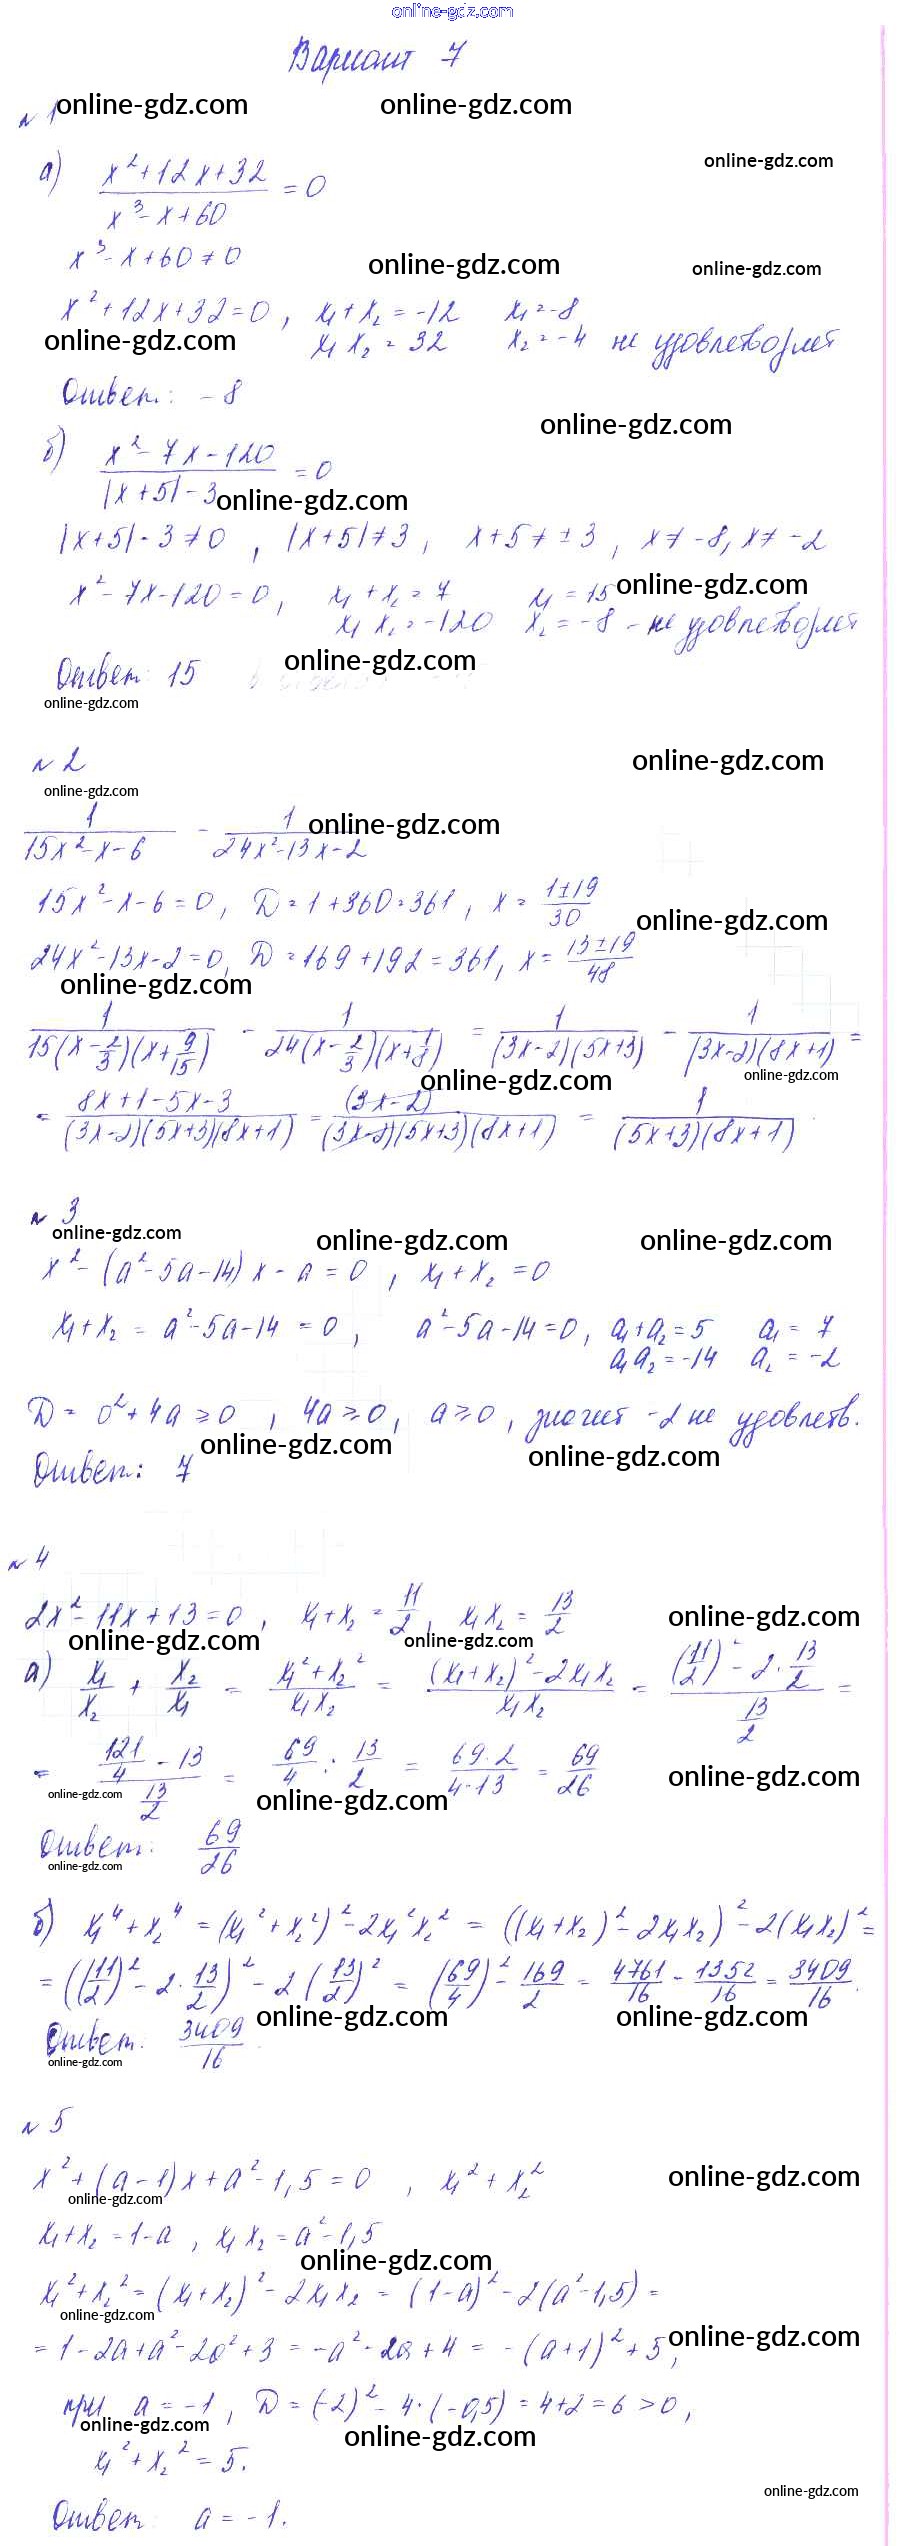 online-gdz.com
Вариант 7
online-gdz.com online-gdz.com
№ 1
online-gdz.com
а) (x²+12x+32)/(x³-x+60) = 0
x³-x+60≠0
online-gdz.com online-gdz.com
x²+12x+32=0, x₁+x₂=-12 x₁=-8
online-gdz.com x₁x₂=32 x₂=-4 не удовлетворяет
Ответ: -8
online-gdz.com
б) (x²-7x-120)/(|x+5|-3) = 0
online-gdz.com
|x+5|-3≠0, |x+5|≠3, x+5≠±3, x≠-8, x≠-2
x²-7x-120=0, x₁+x₂=7 x₁=15 online-gdz.com
x₁x₂=-120 x₂=-8 - не удовлетворяет
Ответ: 15 online-gdz.com
online-gdz.com
№ 2 online-gdz.com
online-gdz.com
1/(15x²-x-6) - 1/(24x²-13x-2) online-gdz.com
15x²-x-6=0, D=1+360=361, x=(1±19)/30
online-gdz.com
24x²-13x-2=0, D=169+192=361, x=(13±19)/48
online-gdz.com
1/(15(x-2/3)(x+9/15)) - 1/(24(x-2/3)(x+1/8)) = 1/((3x-2)(5x+3)) - 1/((3x-2)(8x+1)) =
online-gdz.com online-gdz.com
= (8x+1-5x-3)/((3x-2)(5x+3)(8x+1)) = (3x-2)/((3x-2)(5x+3)(8x+1)) = 1/((5x+3)(8x+1)).
№ 3
online-gdz.com online-gdz.com online-gdz.com
x²-(a²-5a-14)x-a=0, x₁+x₂=0
x₁+x₂=a²-5a-14=0, a²-5a-14=0, a₁+a₂=5 a₁=7
a₁a₂=-14 a₂=-2
D=0²+4a≥0, 4a≥0, a≥0, значит -2 не удовлетв.
online-gdz.com online-gdz.com
Ответ: 7
№ 4
2x²-11x+13=0, x₁+x₂=11/2, x₁x₂=13/2 online-gdz.com
online-gdz.com online-gdz.com
а) x₁/x₂ + x₂/x₁ = (x₁²+x₂²)/(x₁x₂) = ((x₁+x₂)²-2x₁x₂)/(x₁x₂) = ((11/2)²-2·13/2)/(13/2) =
= (121/4-13)/(13/2) = 69/4 : 13/2 = (69·2)/(4·13) = 69/26 online-gdz.com
online-gdz.com online-gdz.com
Ответ: 69/26
online-gdz.com
б) x₁⁴+x₂⁴=(x₁²+x₂²)²-2x₁²x₂²=((x₁+x₂)²-2x₁x₂)²-2(x₁x₂)²=
=((11/2)²-2·13/2)²-2(13/2)²=(69/4)²-169/2=4761/16-1352/16=3409/16.
online-gdz.com online-gdz.com
Ответ: 3409/16.
online-gdz.com
№ 5
x²+(a-1)x+a²-1,5=0, x₁²+x₂² online-gdz.com
online-gdz.com
x₁+x₂=1-a, x₁x₂=a²-1,5
online-gdz.com
x₁²+x₂²=(x₁+x₂)²-2x₁x₂=(1-a)²-2(a²-1,5)=
online-gdz.com
=1-2a+a²-2a²+3=-a²-2a+4=-(a+1)²+5, online-gdz.com
при a=-1, D=(-2)²-4·(-0,5)=4+2=6>0,
online-gdz.com online-gdz.com
x₁²+x₂²=5.
online-gdz.com
Ответ: a=-1.